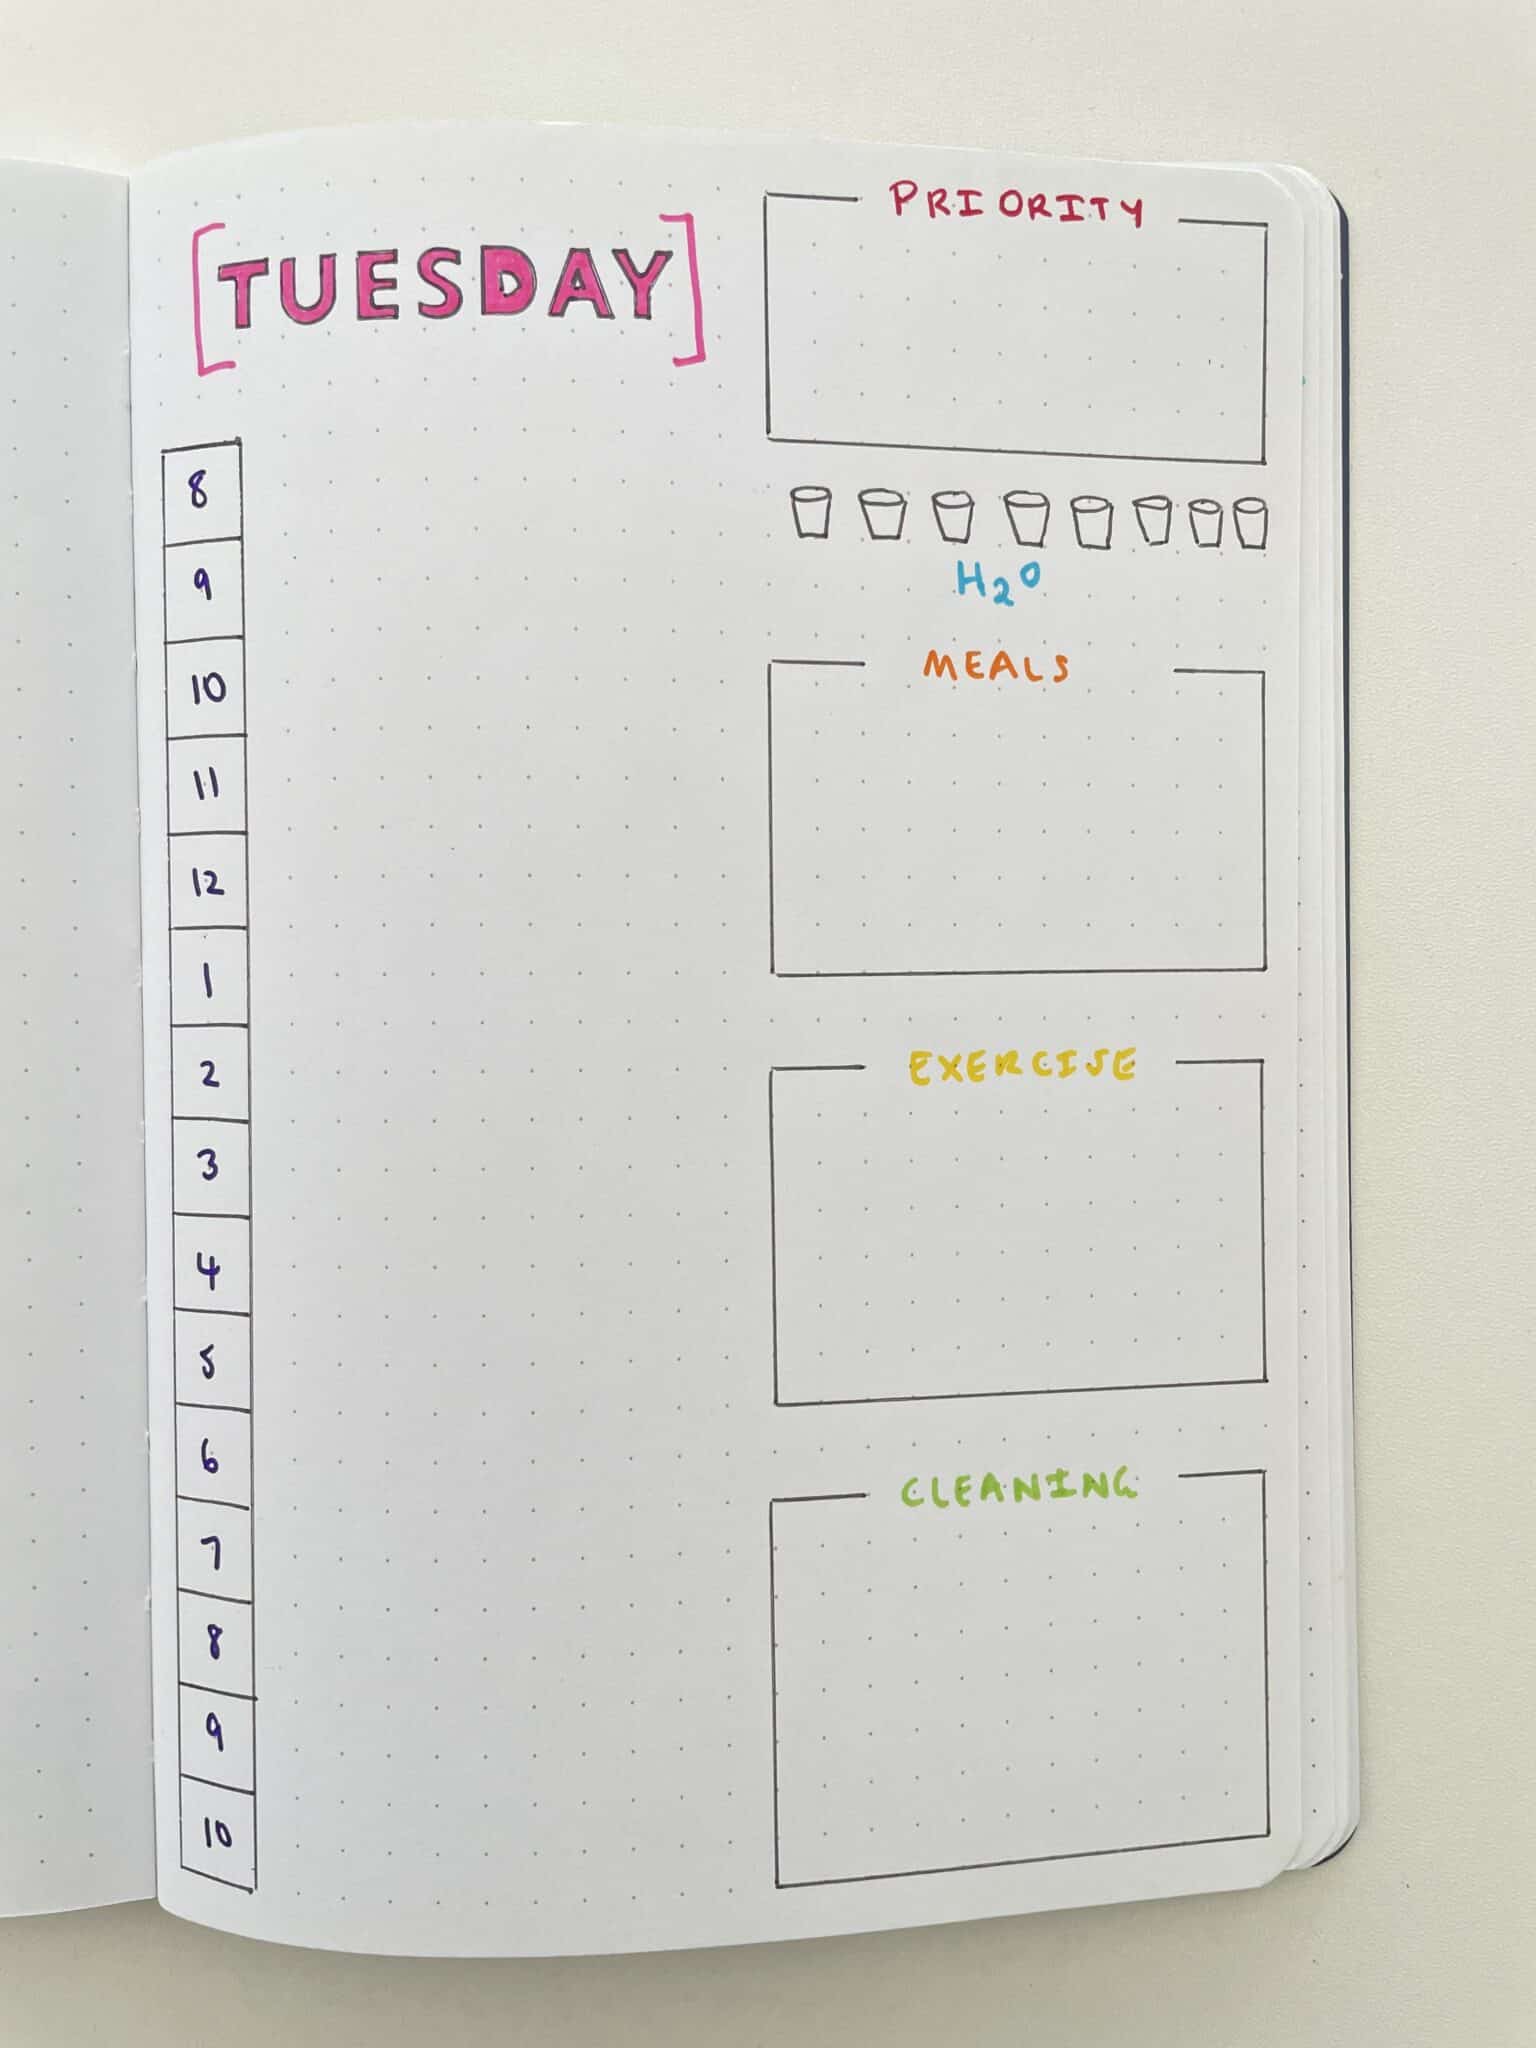 [TUESDAY]
8
9
10
11
12
1
2
3
4
5
6
7
8
9
10
PRIORITY
H2O
MEALS
EXERCISE
CLEANING